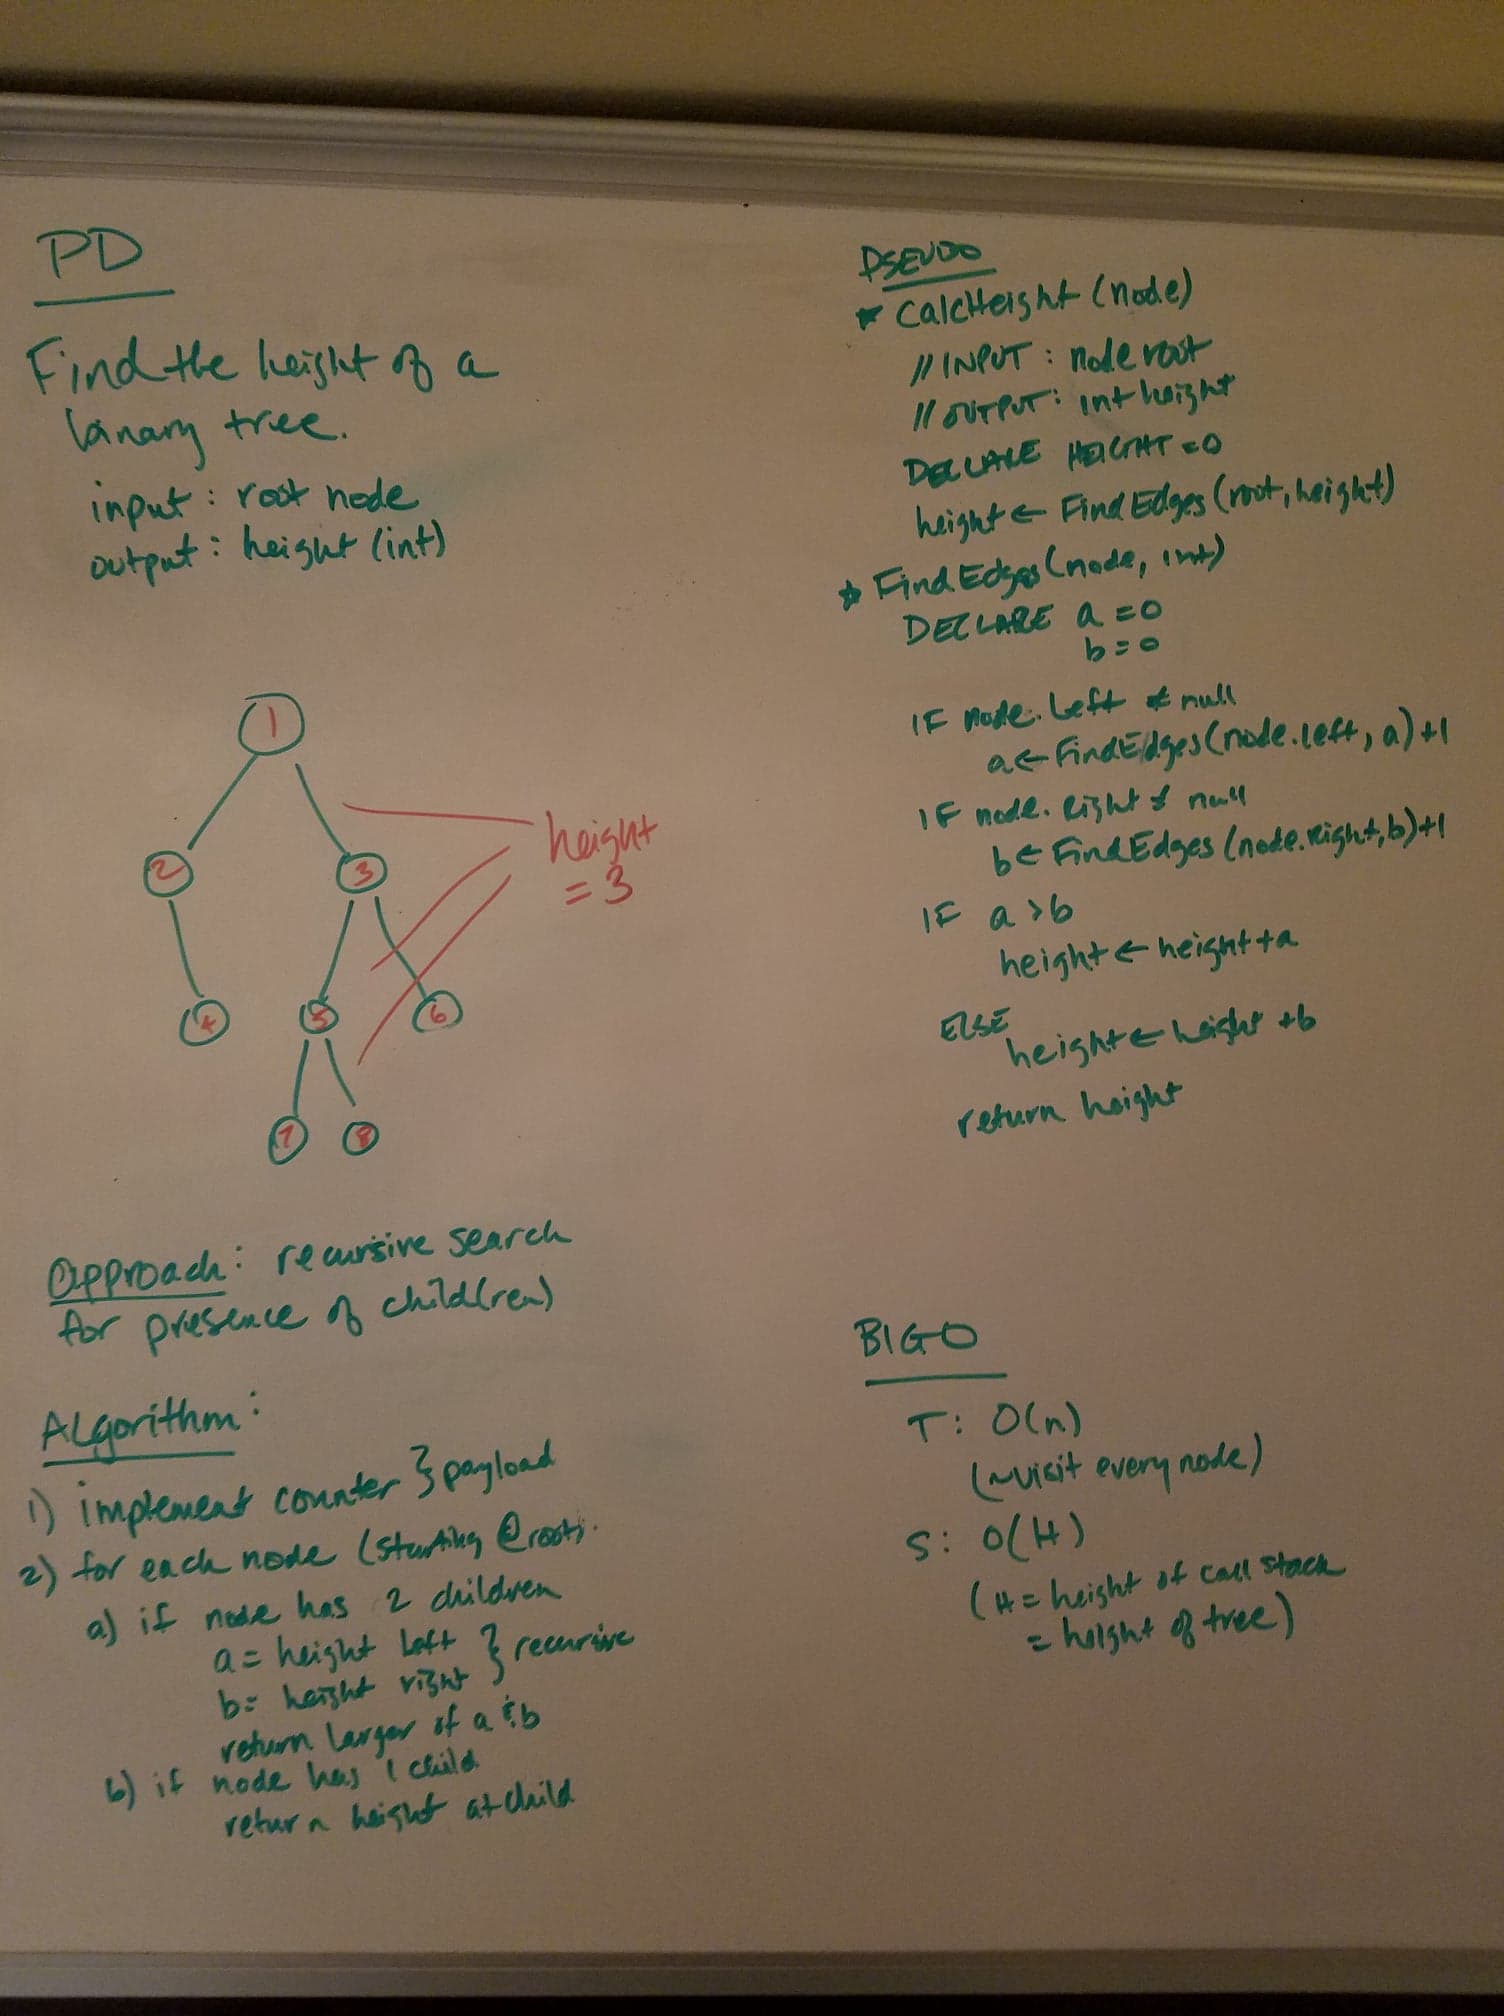 PD
Find the height of a
binary tree.
input : root node
output : height (int)
1
2
3
4
5
6
7
8
height
= 3
Approach : recursive search
for presence of child(ren)
ALgorithm :
1) implement counter } payload
2) for each node (starting @ root).
a) if node has 2 children
a = height left } recursive
b = height right
return larger of a & b
b) if node has 1 child
return height at child
PSEUDO
* CalcHeight (node)
// INPUT : node root
// OUTPUT : int height
DECLARE HEIGHT = 0
height ← Find Edges (root, height)
* Find Edges (node, int)
DECLARE a = 0
b = 0
IF node. Left ≠ null
a ← FindEdges (node.left, a) +1
IF node. Right ≠ null
b ← FindEdges (node.right, b) +1
IF a > b
height ← height + a
ELSE
height ← height + b
return height
BIG O
T : O(n)
(~visit every node)
S : O(H)
(H = height of call stack
= height of tree)